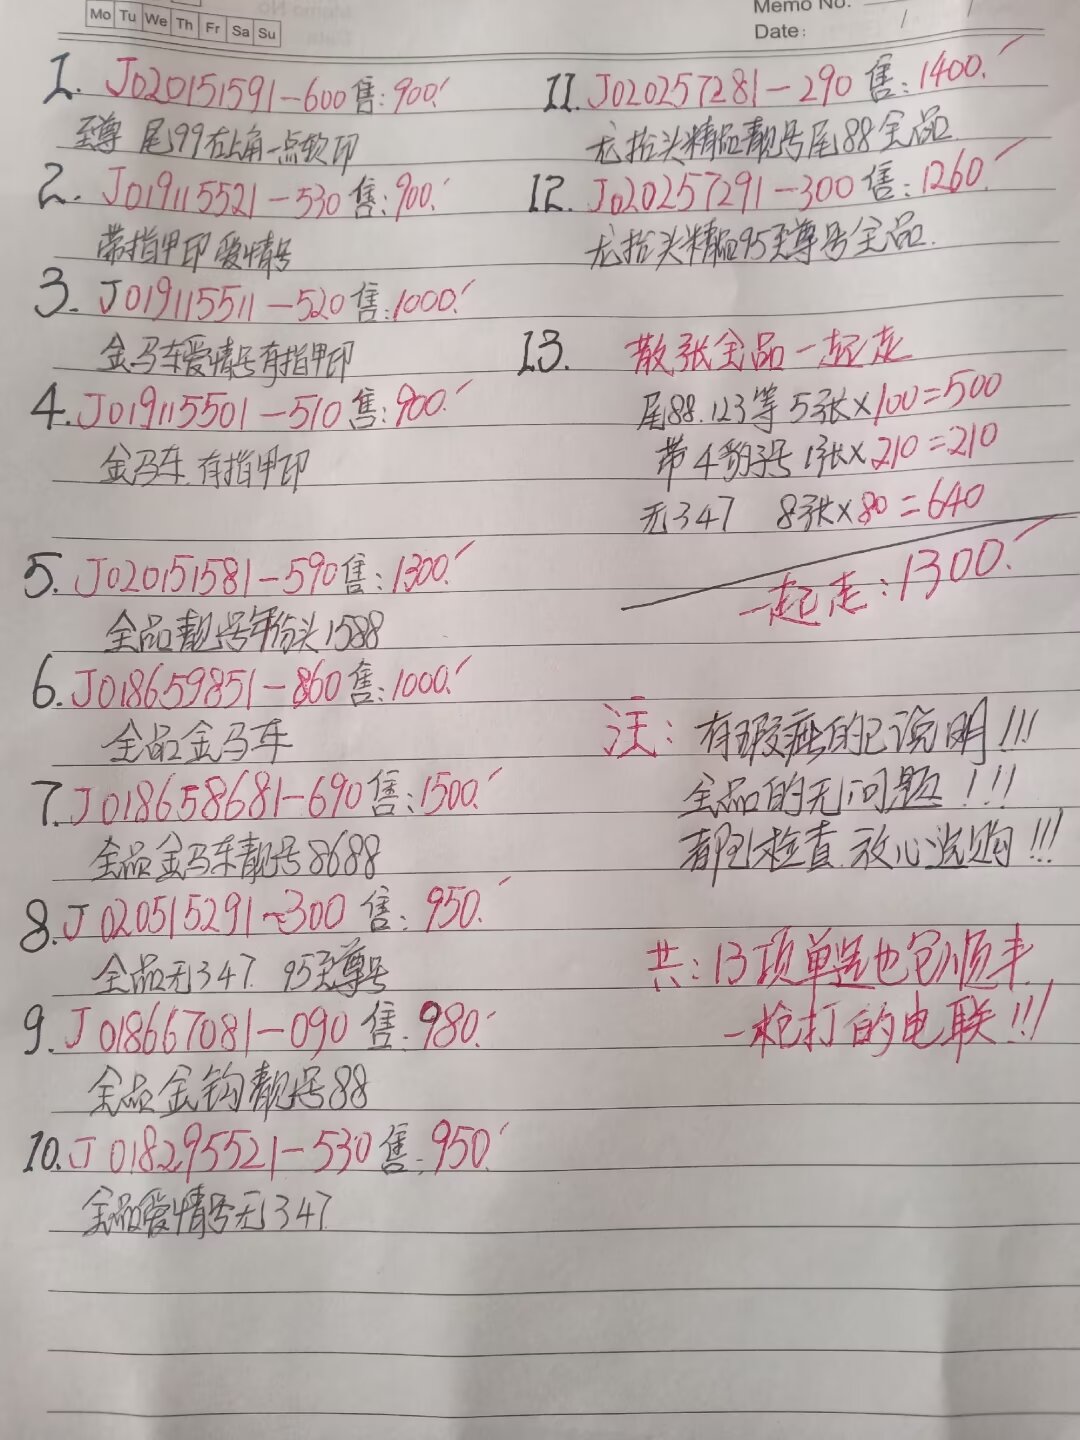 Mo Tu We Th Fr Sa Su
Memo No.
Date: / /
1. J020151591-600售:900.
至尊 尾99右上角一点软印
2. J019115521-530售:900.
带指甲印 爱情号
3. J019115511-520售:1000.
金马车爱情号有指甲印
4. J019115501-510售:900.
金马车 有指甲印
5. J020151581-590售:1300.
全品靓号年份头1588
6. J018659851-860售:1000.
全品金马车
7. J018658681-690售:1500.
全品金马车靓号8688
8. J020515291-300 售:950.
全品无347 95至尊号
9. J018667081-090售:980.
全品金钩靓号88
10. J018295521-530售:950.
全品爱情号无347
11. J020257281-290售:1400.
龙抬头精品靓号尾88全品
12. J020257291-300售:1260.
龙抬头精品95至尊号全品.
13. 散张全品一起走
尾88.123等5张×100=500
带4豹子号1张×210=210
无347 8张×80=640
一起走:1300.
注: 有瑕疵的已说明!!!
全品的无问题!!!
都已检查 放心选购!!!
共:13项单选也包顺丰
一枪打的电联!!!